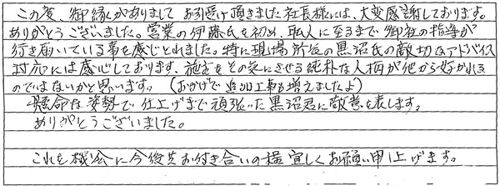 この度、御縁がありまして お引受け頂きました社長様には、大変感謝しております。
ありがとうございました。営業の伊藤氏を初め、職人に至るまで御社の指導が
行き届いている事を感じとれました。特に現場所長の黒沼氏の適切なアドバイス
対応には感心しております。施主をその気にさせる純朴な人柄が他から好かれる
のではないかと思います。(おかげで追加工事も増えましたよ)
懸命な姿勢で仕上げまで頑張った黒沼君に敬意を表します。
ありがとうございました。
これを機会に今後共お付き合いの程宜しくお願い申し上げます。